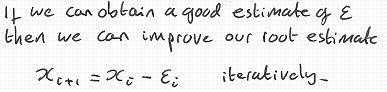 If we can obtain a good estimate of ε
then we can improve our root estimate
xᵢ₊₁ = xᵢ - εᵢ iteratively.